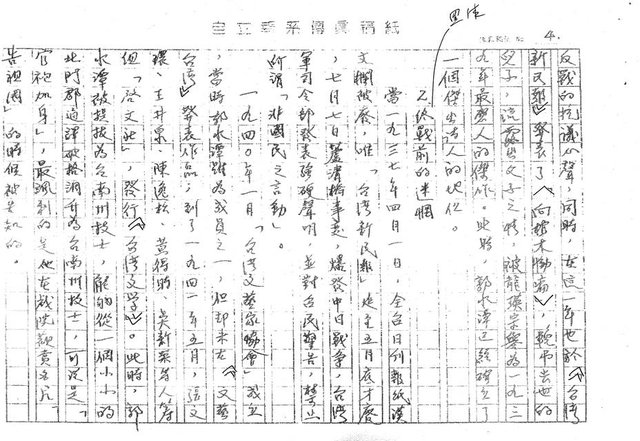 自立晚報系傳真稿紙
4.
反戰的抗議心聲，同時，在這一年也於《台灣
新民報》發表了《向棺木慟哭》，輓弔去世的
兒子，流露出父子之情，被龍瑛宗譽為一九三
九年最感人的傑作。此時，郭水潭已經確立了
一個傑出詩人的地位。
2.終戰前的迷惘
當一九三七年四月一日，全台日刊報紙漢
文欄被廢，唯「台灣新民報」延至五月底才廢
，七月七日蘆溝橋事起，爆發中日戰爭，台灣
軍司令部發表強硬聲明，並對台民警告，禁止
所謂「非國民之言動」。
一九四〇年一月「台灣文藝家協會」成立
，當時郭水潭雖為成員之一，但却未在《文藝
台灣》發表作品；到了一九四一年五月，張文
環、王井泉、陳逸松、黃得時、吳新榮等人籌
組「啓文社」，發行《台灣文學》。此時，郭
水潭被提拔為台南州技士，能夠從一個小小的
北門郡通譯破格調升為台南州技士，可說是「
官袍加身」，最諷刺的是他在戲院觀賞名片《
告祖國》的時候被告知的。